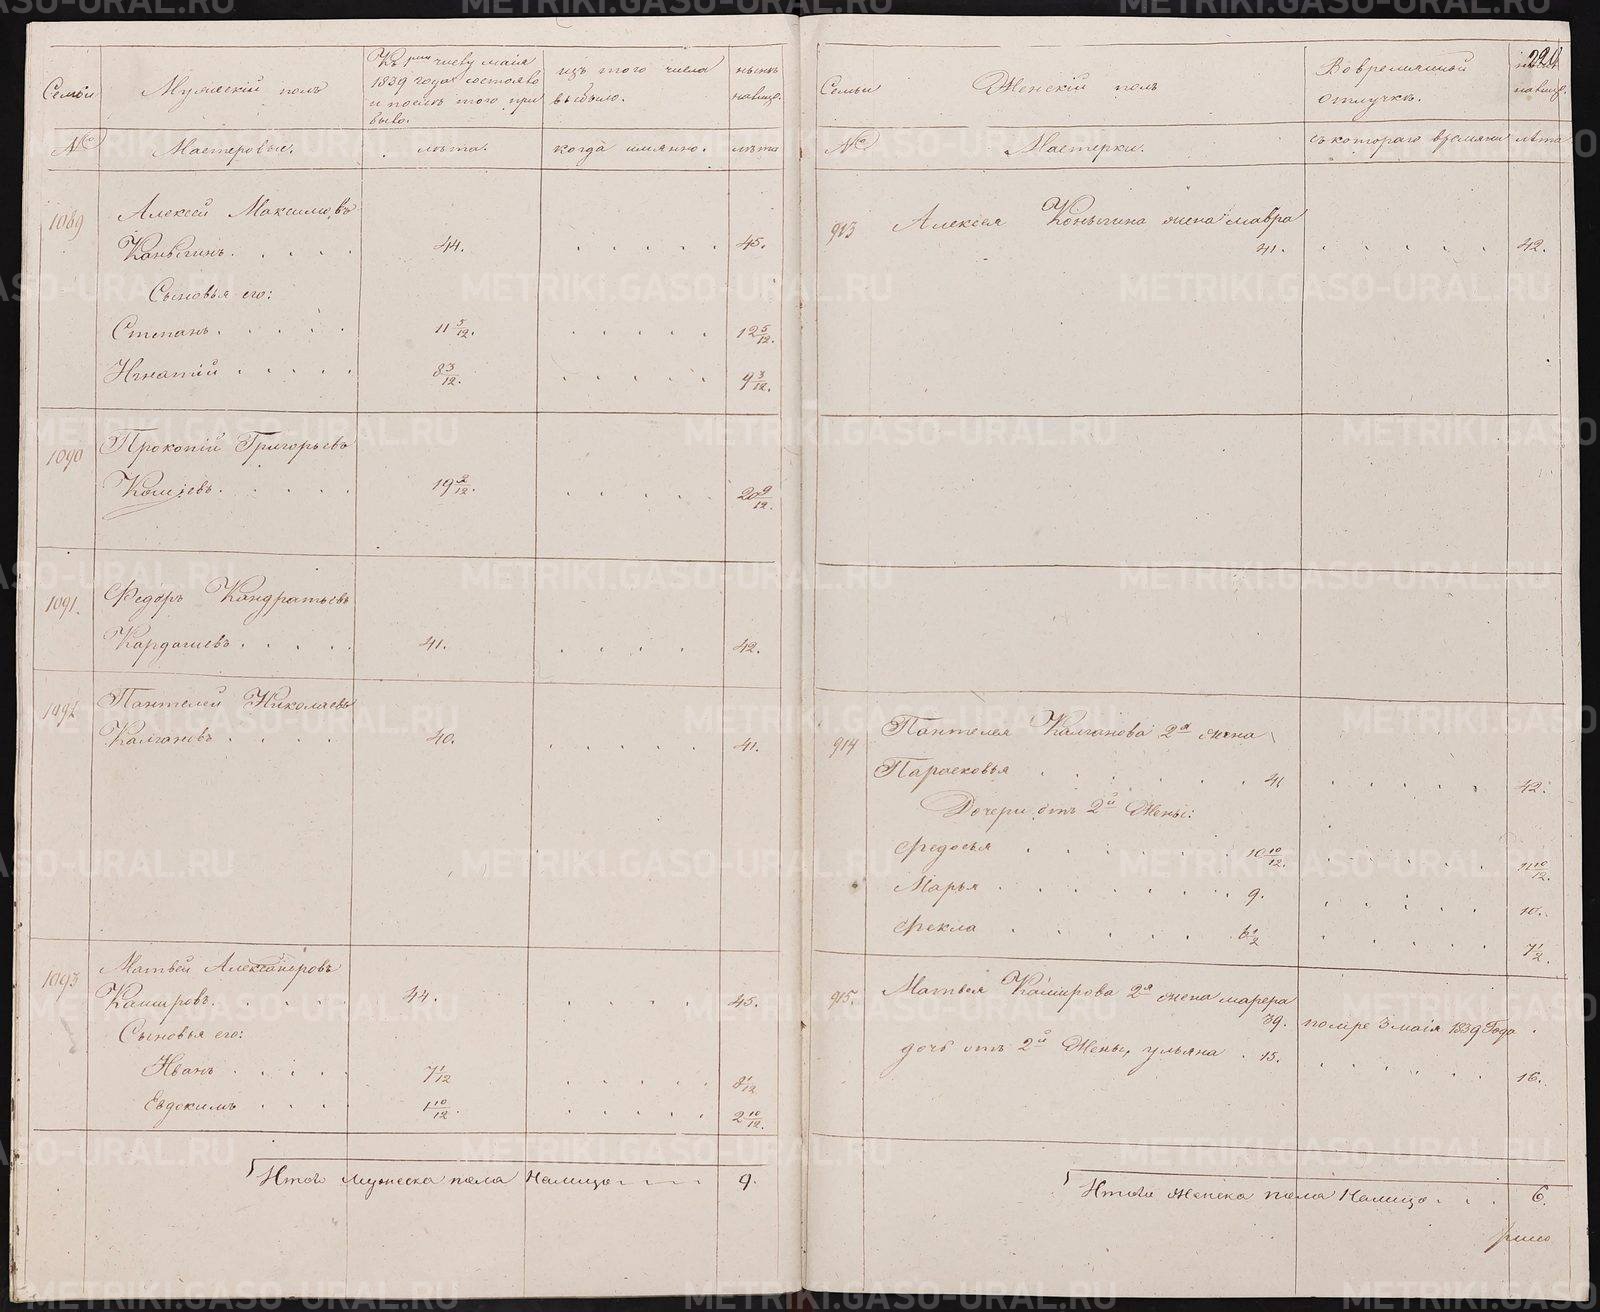 Семьи
Мужескій полъ
Къ 1му числу маія
1839 года состояло
и после того при
было.
изъ того числа
выбыло.
ныне
налицо.
№
Мастеровые.
лѣта.
когда имянно.
лѣта
1089
Алексей Максимовъ
Коныгинъ. 44. 45.
Сыновья его:
Степанъ. 11 5/12. 12 5/12.
Игнатій 8 3/12. 9 3/12.
1090
Прокопій Григорьевъ
19 20 9/12.
1091.
Федоръ Кондратьевъ
Кардашевъ. 41. 42.
1092
Пантелей Николаевъ
Калгановъ 40. 41.
1093
Матвей Александровъ
Кашировъ. 44. 45.
Сыновья его:
Иванъ 7 1/12 8 1/12
Евдокимъ 1 10/12. 2 10/12.
Итого мужеска пола Налицо 9.
220
Семьи
Женскій полъ
Во времянной
отлучке.
налиц.
№
Мастерки.
съ котораго времяни
лѣта
913
Алексея Коныгина жена мавра
41. 42.
914
Пантелея Калганова 2я жена
Парасковья 41 42.
Дочери отъ 2й Жены:
Федосья 10 10/12. 11 10/12.
Марья 9. 10.
Фекла 6 1/2 7 1/2.
915.
Матвея Каширова 2я жена
39. помре 3 маія 1839 Года
дочь отъ 2й Жены, ульяна 15. 16.
Итого женска пола Налицо 6.